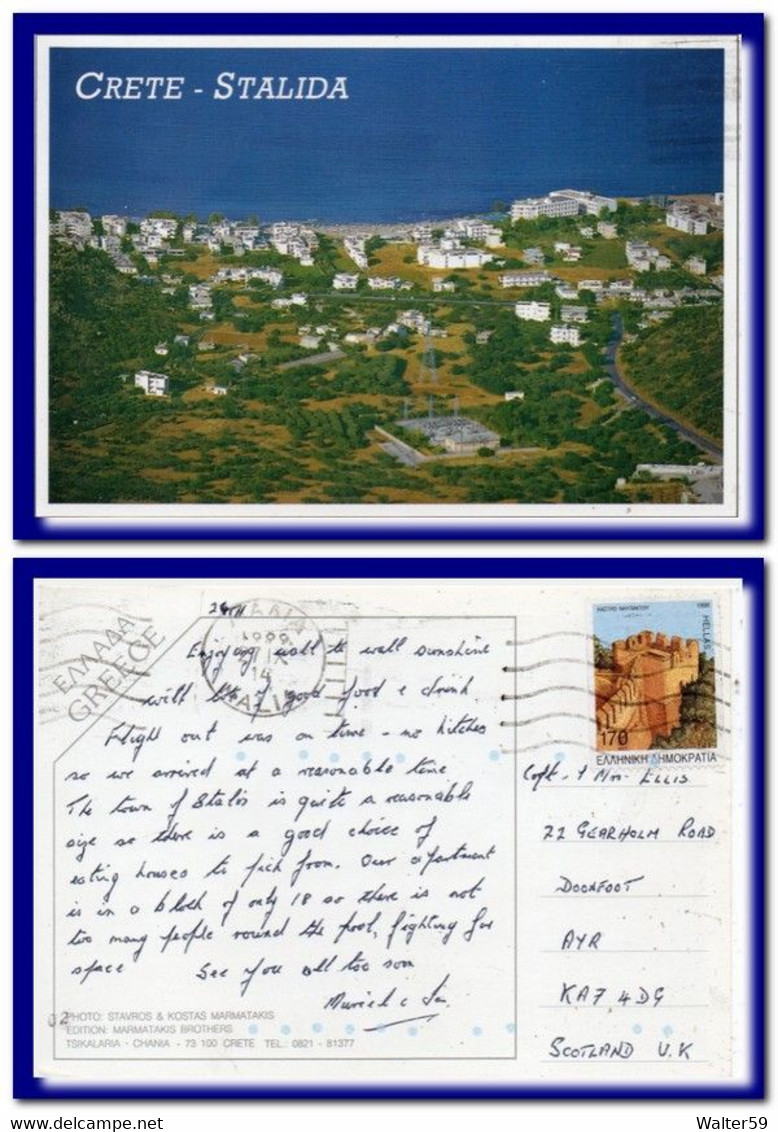 CRETE - STALIDA
ΕΛΛΑΔΑ
GREECE
1999
14
ΚΑΣΤΡΟ ΝΑΥΠΑΚΤΟΥ 1998
HELLAS
170
ΕΛΛΗΝΙΚΗ ΔΗΜΟΚΡΑΤΙΑ
Enjoying wall to wall sunshine
with lots of good food & drink.
Flight out was on time - no hitches
so we arrived at a reasonable time
The town of Stalis is quite a reasonable
size so there is a good choice of
eating houses to pick from. Our apartment
is in a block of only 18 so there is not
too many people round the pool, fighting for
space See you all too soon
Muriel &
Capt. & Mrs. ELLIS
22 GEARHOLM ROAD
DOONFOOT
AYR
KA7 4DG
SCOTLAND U.K
02
PHOTO: STAVROS & KOSTAS MARMATAKIS
EDITION: MARMATAKIS BROTHERS
TSIKALARIA - CHANIA - 73 100 CRETE TEL.: 0821 - 81377
Walter59